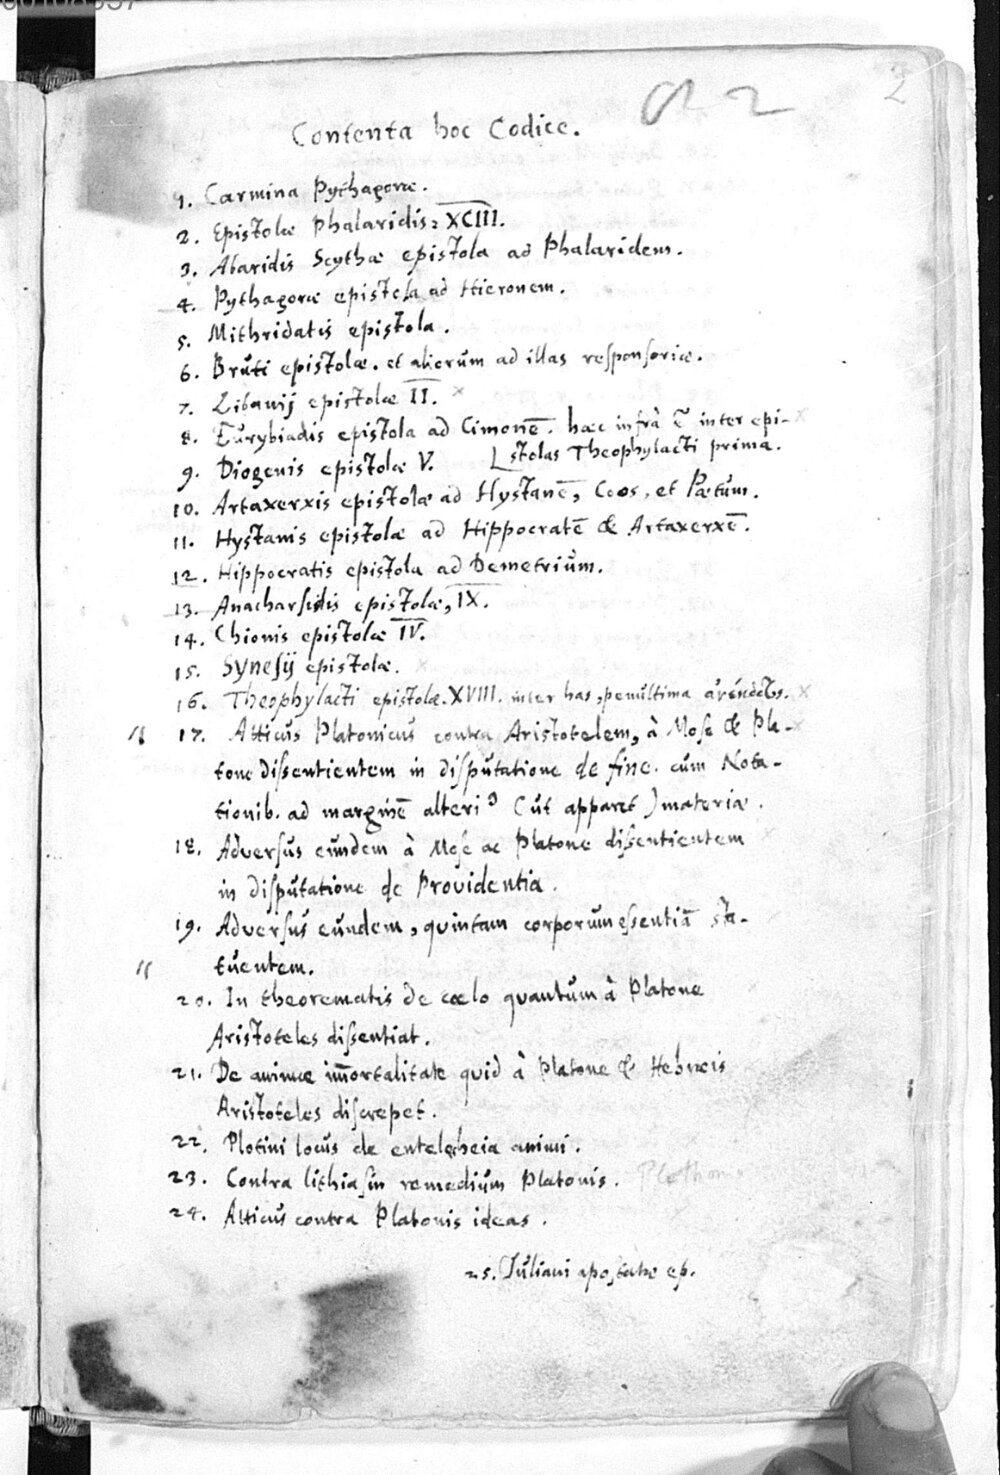 2
Contenta hoc Codice.
1. Carmina Pythagoræ.
2. Epistolæ Phalaridis, XCIII.
3. Abaridis Scythæ epistola ad Phalaridem.
4. Pythagoræ epistola ad Hieronem.
5. Mithridatis epistola.
6. Bruti epistolæ. et aliorum ad illas responsoriæ.
7. Libanij epistolæ II. x
8. Eurybiadis epistola ad Cimonē. hæc infrà ē inter epi-
9. Diogenis epistolæ V. stolas Theophylacti prima.
10. Artaxerxis epistolæ ad Hystanē, Coos, et Pætum.
11. Hystanis epistolæ ad Hippocratē & Artaxerxē.
12. Hippocratis epistola ad Demetrium.
13. Anacharsidis epistolæ, IX.
14. Chionis epistolæ IV.
15. Synesij epistolæ.
16. Theophylacti epistolæ. XVIII. inter has, penultima
17. Atticus Platonicus contra Aristotelem, à Mose & Pla-
tone dissentientem in disputatione de fine. cum Nota-
tionib. ad marginē alteri⁹ (ut apparet) materiæ.
18. Adversus eundem à Mose ac Platone dissentientem
in disputatione de Providentia.
19. Adversus eundem, quintam corporum essentiā sta-
tuentem.
20. In theorematis de cœlo quantum à Platone
Aristoteles dissentiat.
21. De animæ im̄ortalitate quid à Platone & Hebræis
Aristoteles discrepet.
22. Plotini locus de entelecheia animi.
23. Contra lithiasin remedium Platonis.
24. Atticus contra Platonis ideas.
25. Juliani apostatæ ep.